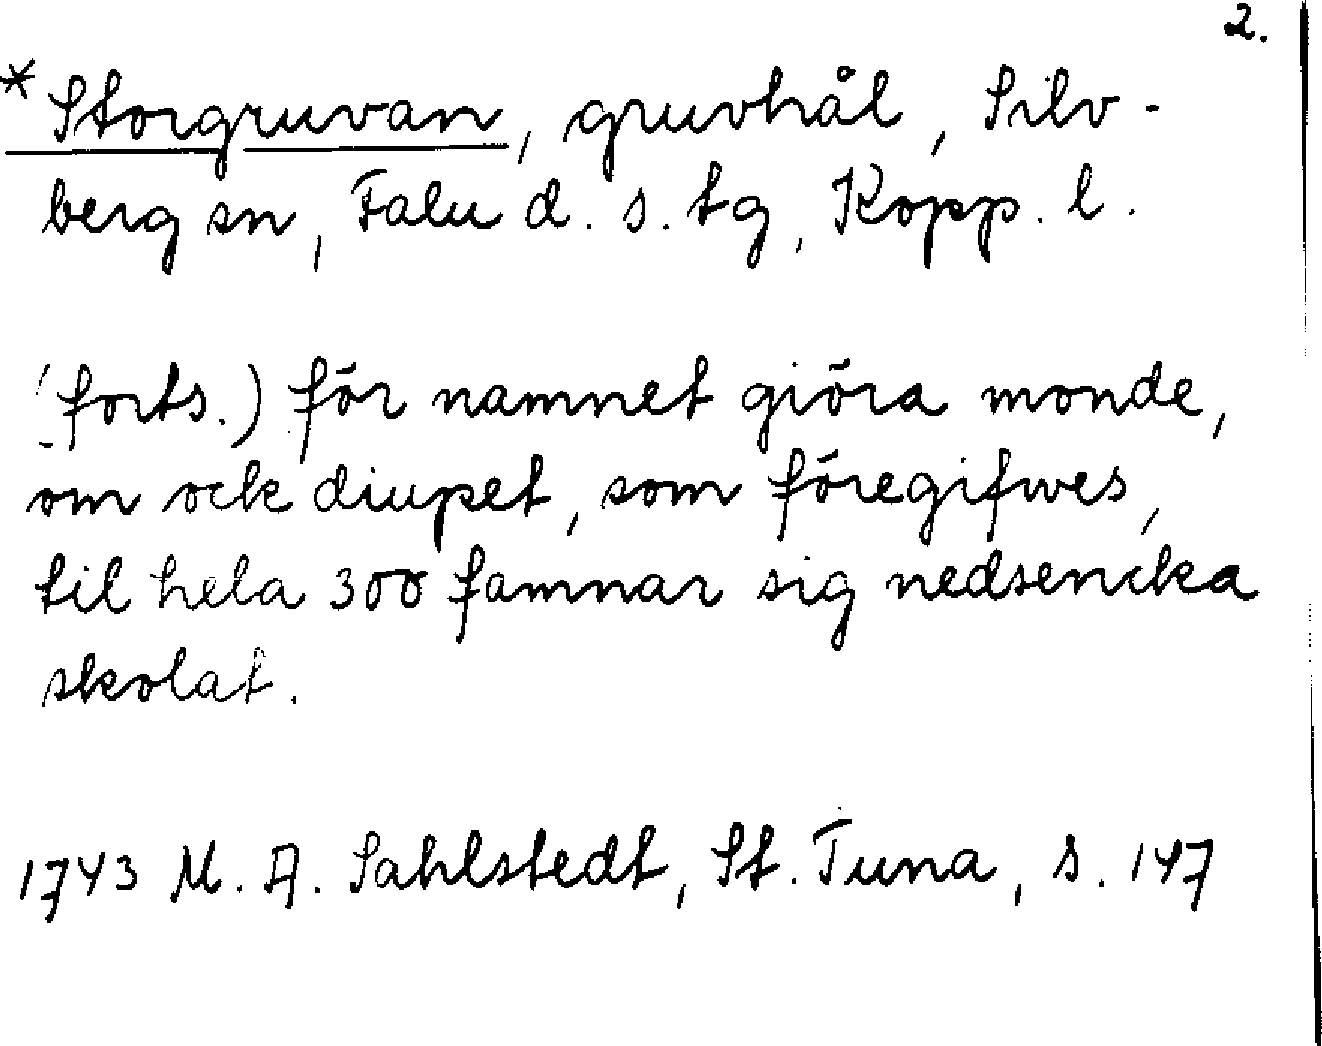 2.
*Storgruvan, gruvhål, Silv-
berg sn, Falu d. s. tg, Kopp. l.
(forts.) för namnet giöra monde,
om ock diupet, som föregifwes,
til hela 300 famnar sig nedsencka
skolat.
1743 M. A. Sahlstedt, St. Tuna, s. 147